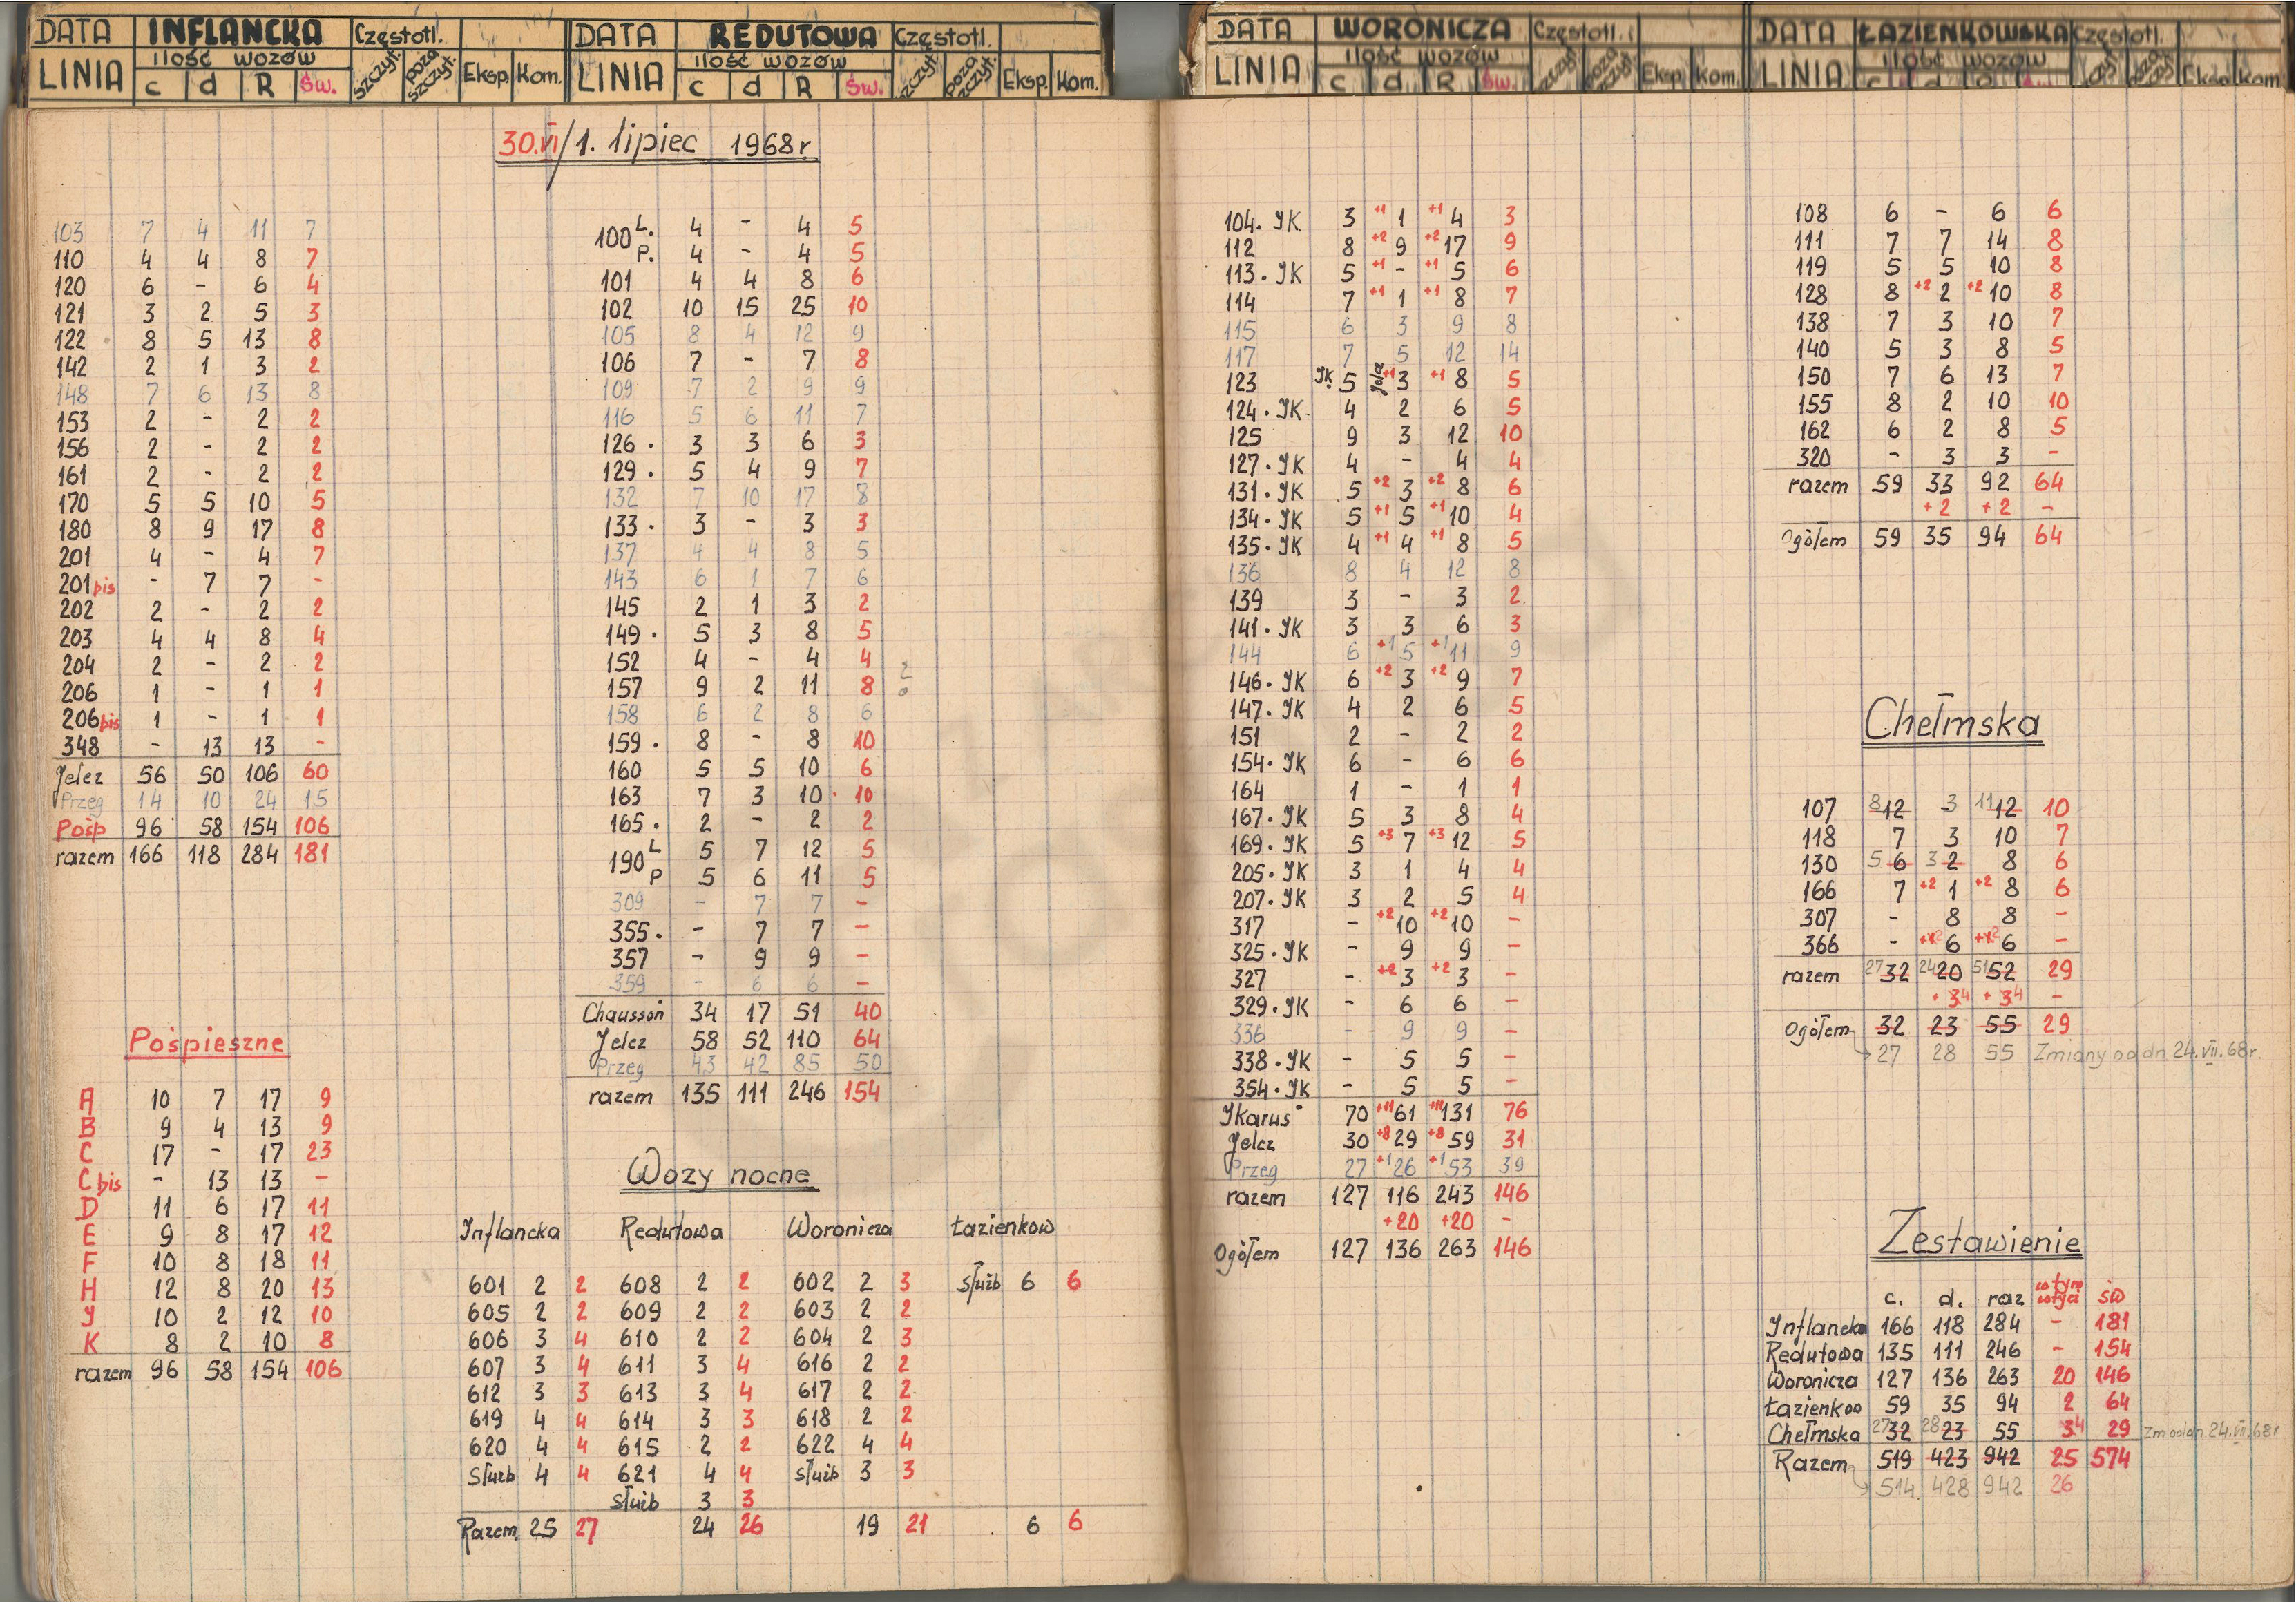 DATA INFLANCKA Częstotl.
ilość wozów
LINIA c d R Św. szczyt. poza szczyt. Eksp. Kom.
30.VI/1. lipiec 1968 r.
103 7 4 11 7
110 4 4 8 7
120 6 - 6 4
121 3 2 5 3
122 8 5 13 8
142 2 1 3 2
148 7 6 13 8
153 2 - 2 2
156 2 - 2 2
161 2 - 2 2
170 5 5 10 5
180 8 9 17 8
201 4 - 4 7
201 bis - 7 7 -
202 2 - 2 2
203 4 4 8 4
204 2 - 2 2
206 1 - 1 1
206 bis 1 - 1 1
348 - 13 13 -
Jelcz 56 50 106 60
Przeg 14 10 24 15
Pośp 96 58 154 106
razem 166 118 284 181
Pośpieszne
A 10 7 17 9
B 9 4 13 9
C 17 - 17 23
C bis - 13 13 -
D 11 6 17 11
E 9 8 17 12
F 10 8 18 11
H 12 8 20 13
J 10 2 12 10
K 8 2 10 8
razem 96 58 154 106
DATA REDUTOWA Częstotl.
ilość wozów
LINIA c d R Św. szczyt. poza szczyt. Eksp. Kom.
100 L. 4 - 4 5
P. 4 - 4 5
101 4 4 8 6
102 10 15 25 10
105 8 4 12 9
106 7 - 7 8
109 7 2 9 9
116 5 6 11 7
126 . 3 3 6 3
129 . 5 4 9 7
132 7 10 17 8
133 . 3 - 3 3
137 4 4 8 5
143 6 1 7 6
145 2 1 3 2
149 . 5 3 8 5
152 4 - 4 4
157 9 2 11 8
158 6 2 8 6
159 . 8 - 8 10
160 5 5 10 6
163 7 3 10 10
165 . 2 - 2 2
190 L 5 7 12 5
P 5 6 11 5
309 - 7 7 -
355 . - 7 7 -
357 - 9 9 -
359 - 6 6 -
Chausson 34 17 51 40
Jelcz 58 52 110 64
Przeg 43 42 85 50
razem 135 111 246 154
Wozy nocne
Inflancka Redutowa Woronicza Łazienkow
601 2 2 608 2 2 602 2 3 służb 6 6
605 2 2 609 2 2 603 2 2
606 3 4 610 2 2 604 2 3
607 3 4 611 3 4 616 2 2
612 3 3 613 3 4 617 2 2
619 4 4 614 3 3 618 2 2
620 4 4 615 2 2 622 4 4
służb 4 4 621 4 4 służb 3 3
służb 3 3
Razem 25 27 24 26 19 21 6 6
DATA WORONICZA Częstotl.
ilość wozów
LINIA c d R Św. szczyt. poza szczyt. Eksp. Kom.
104. JK 3 +1 1 +1 4 3
112 8 +2 9 +2 17 9
113. JK 5 +1 - +1 5 6
114 7 +1 1 +1 8 7
115 6 3 9 8
117 7 5 12 14
123 JK. 5 Jelcz +1 3 +1 8 5
124. JK. 4 2 6 5
125 9 3 12 10
127. JK 4 - 4 4
131. JK 5 +2 3 +2 8 6
134. JK 5 +1 5 +1 10 4
135. JK 4 +1 4 +1 8 5
136 8 4 12 8
139 3 - 3 2
141. JK 3 3 6 3
144 6 +1 5 +1 11 9
146. JK 6 +2 3 +2 9 7
147. JK 4 2 6 5
151 2 - 2 2
154. JK 6 - 6 6
164 1 - 1 1
167. JK 5 3 8 4
169. JK 5 +3 7 +3 12 5
205. JK 3 1 4 4
207. JK 3 2 5 4
317 - +2 10 +2 10 -
325. JK - 9 9 -
327 - +2 3 +2 3 -
329. JK - 6 6 -
336 - 9 9 -
338. JK - 5 5 -
354. JK - 5 5 -
Jkarus 70 +11 61 +11 131 76
Jelcz 30 +8 29 +8 59 31
Przeg 27 +1 26 +1 53 39
razem 127 116 243 146
+20 +20 -
Ogółem 127 136 263 146
DATA ŁAZIENKOWSKA Częstotl.
ilość wozów
LINIA Eksp. Kom.
108 6 - 6 6
111 7 7 14 8
119 5 5 10 8
128 8 +2 2 +2 10 8
138 7 3 10 7
140 5 3 8 5
150 7 6 13 7
155 8 2 10 10
162 6 2 8 5
320 - 3 3 -
razem 59 33 92 64
+2 +2 -
Ogółem 59 35 94 64
Chełmska
107 8 12 3 11 12 10
118 7 3 10 7
130 5 6 3 2 8 6
166 7 +2 1 +2 8 6
307 - 8 8 -
366 - +2 6 +2 6 -
razem 27 32 24 20 51 52 29
+3 4 +3 4 -
Ogółem 32 23 55 29
27 28 55 Zmiany od dn. 24.VII.68 r.
Zestawienie
c. d. raz w tym św
Inflancka 166 118 284 - 181
Redutowa 135 111 246 - 154
Woronicza 127 136 263 20 146
Łazienkow 59 35 94 2 64
Chełmska 27 32 28 23 55 3 4 29 Zm od dn. 24.VII.68 r
Razem 519 423 942 25 574
514 428 942 26